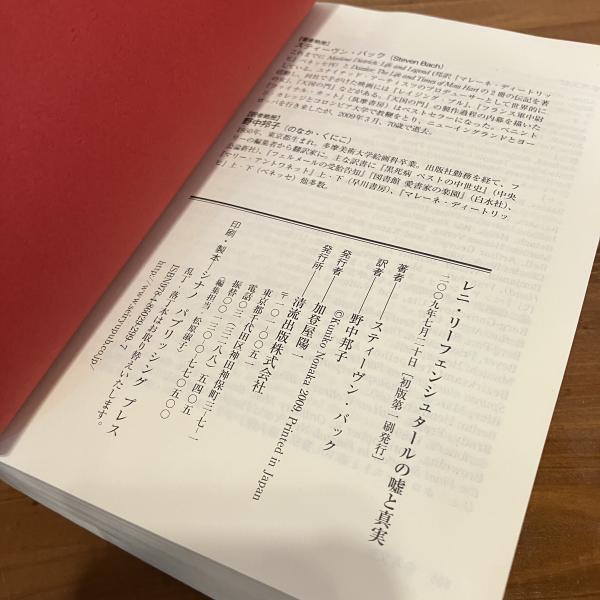 【著者略歴】
スティーヴン・バック (Steven Bach)
これまでに Marlene Dietrich: Life and Legend (邦訳『マレーネ・ディートリッ
ヒ』ベネッセ刊) と Dazzler: The Life and Times of Moss Hart の2冊の伝記を著
している。ユナイテッド・アーティスツのプロデューサーとして世界的に
活動し、同社で手がけた映画には『レイジング・ブル』、『フランス軍中尉
の女』、『天国の門』などがある。『天国の門』の製作過程の内幕を描いた
『ファイナル・カット』(筑摩書房) はベストセラーになった。ベニント
ン・カレッジとコロンビア大学で教鞭をとり、ニューイングランドとヨー
ロッパを行き来したが、2009年3月、70歳で逝去。
【訳者略歴】
野中邦子 (のなか・くにこ)
1950年、東京都生まれ。多摩美術大学絵画科卒業。出版社勤務を経て、フ
リーの編集者から翻訳家に。主な訳書に『黒死病 ペストの中世史』(中央
公論新社)、『フェルメールの受胎告知』『図書館 愛書家の楽園』(白水社)、
『マリー・アントワネット』上・下 (早川書房)、『マレーネ・ディートリッ
ヒ』上・下 (ベネッセ) 他多数。
レニ・リーフェンシュタールの嘘と真実
二〇〇九年七月二十日[初版第一刷発行]
著者 スティーヴン・バック
訳者 野中邦子
©Kuniko Nonaka 2009, Printed in Japan
発行者 加登屋陽一
発行所 清流出版株式会社
〒一〇一-〇〇五一
東京都千代田区神田神保町三-七-一
電話〇三-三二八八-五四〇五
振替〇〇一三〇-〇-七七〇五〇〇
〔編集担当・松原淑子〕
印刷・製本 シナノ パブリッシング プレス
乱丁・落丁本はお取り替えいたします。
ISBN978-4-86029-299-7
http://www.seiryupub.co.jp/